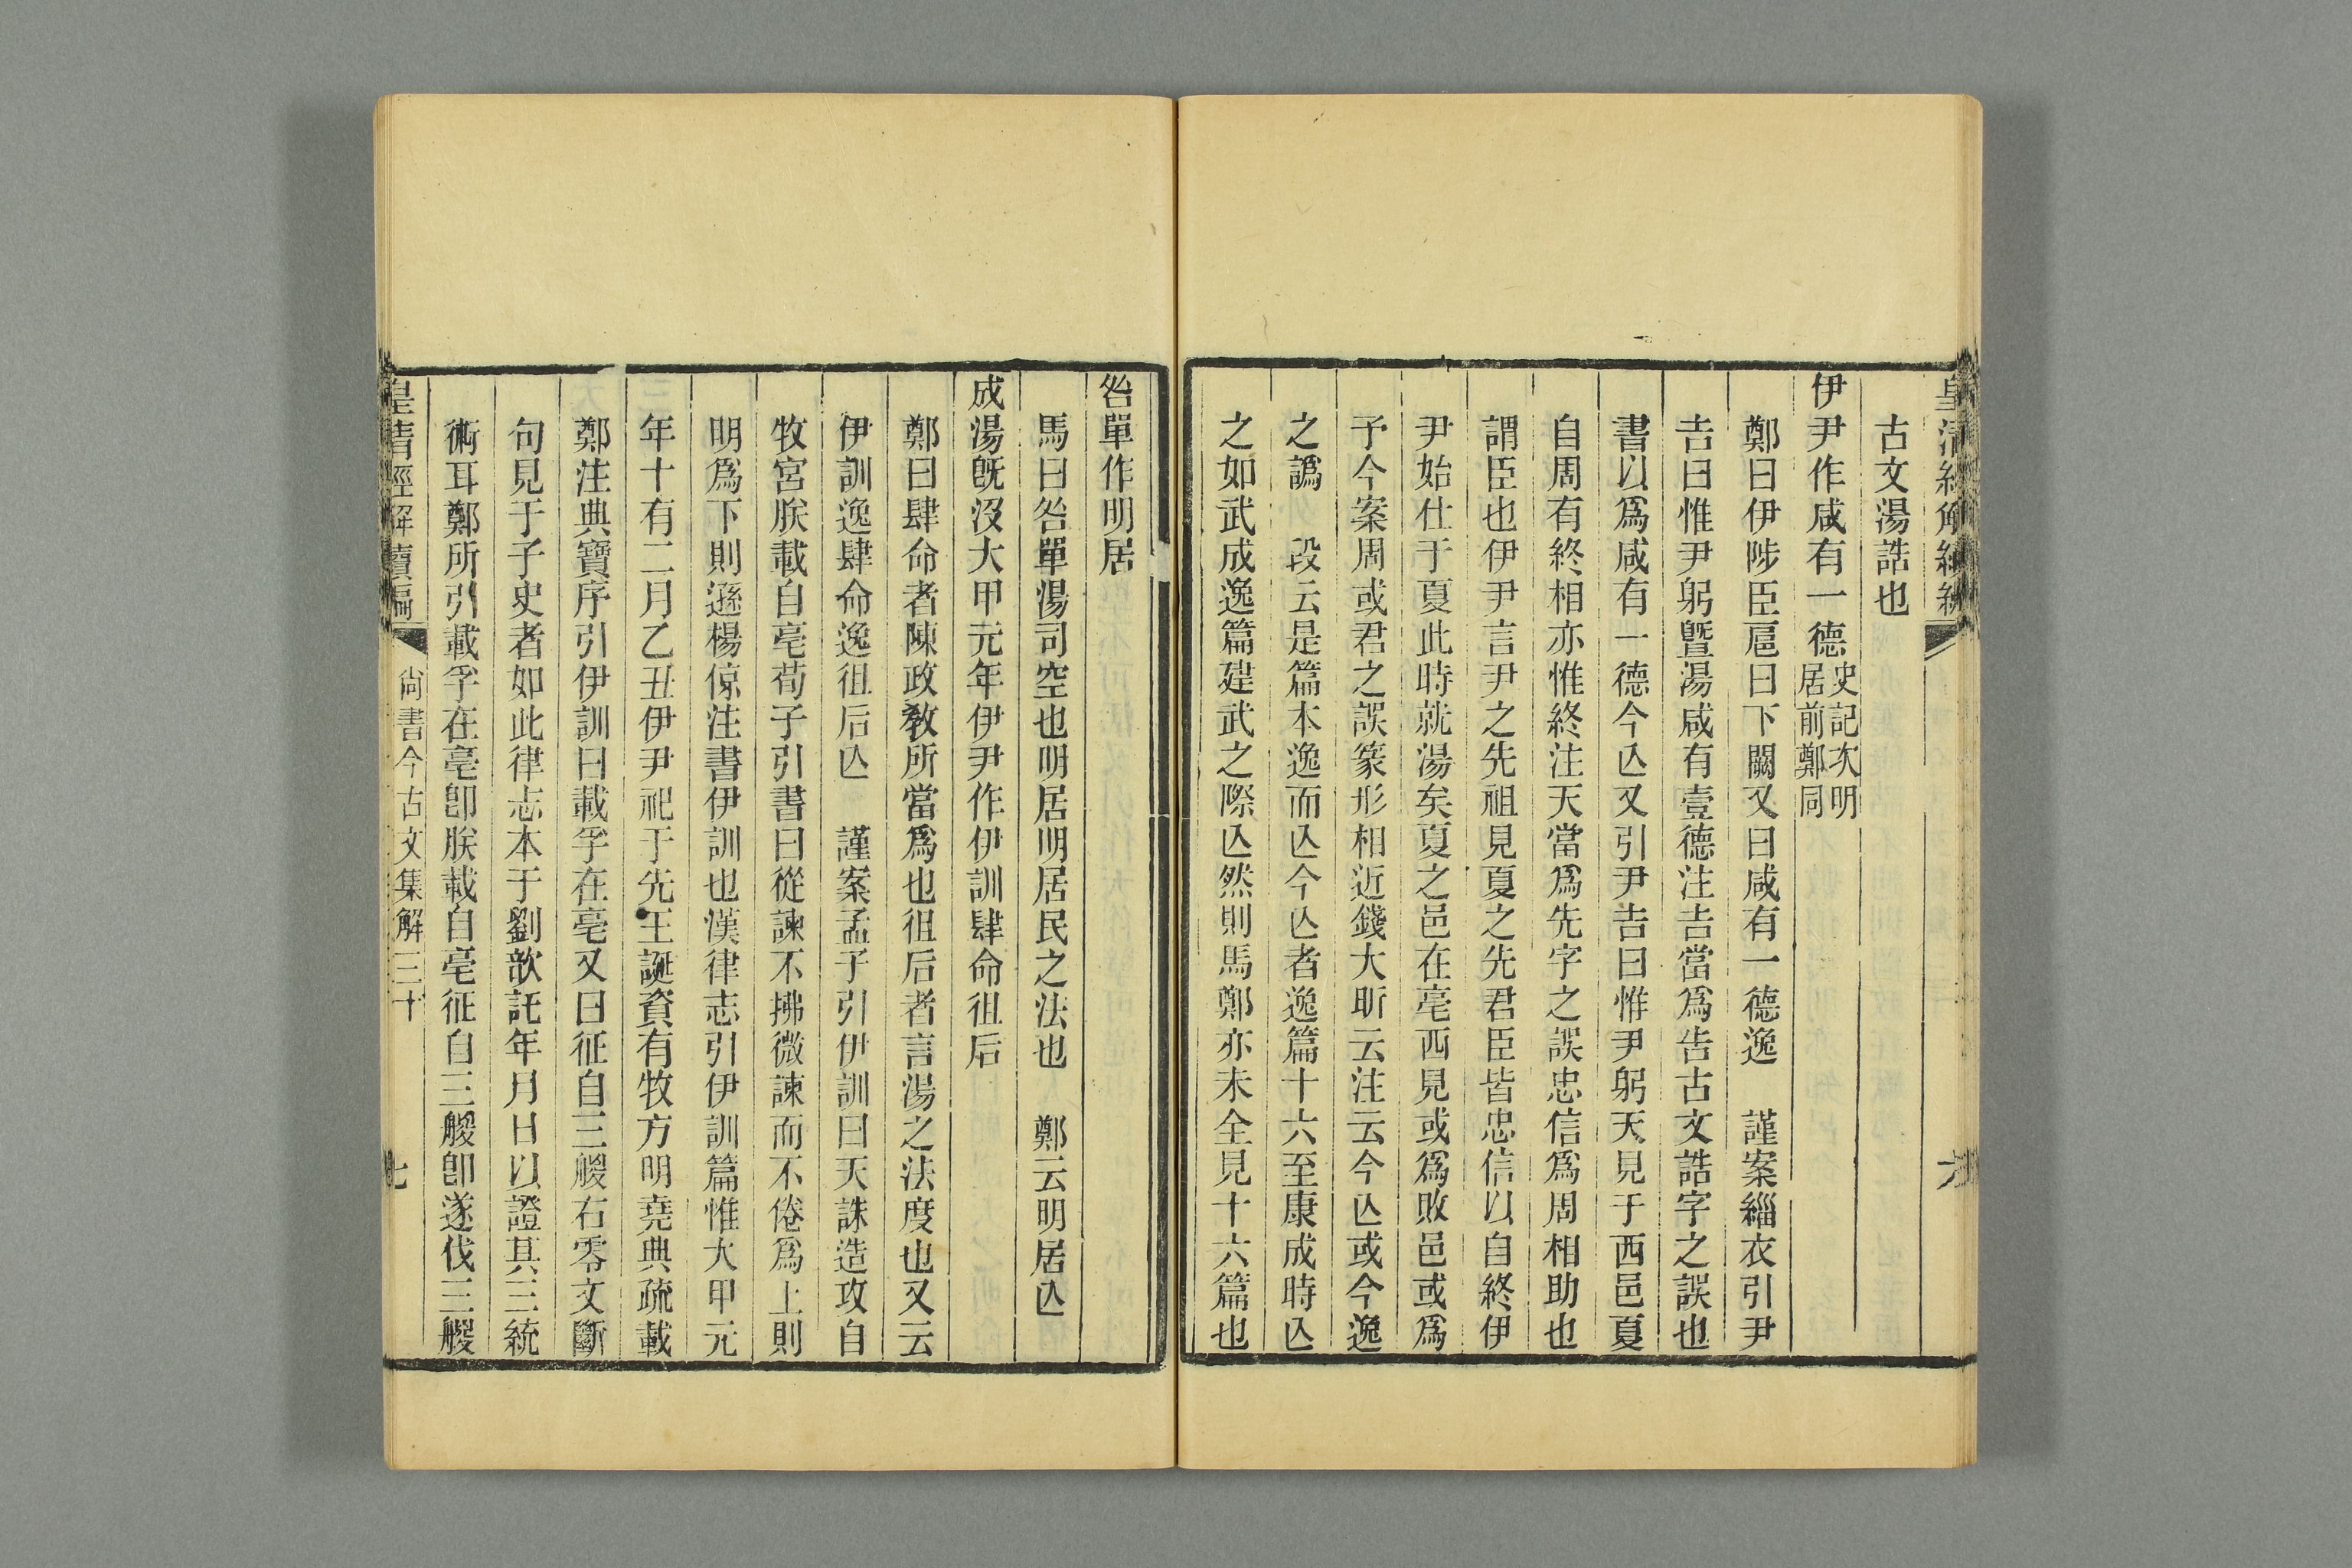 古文湯誥也
伊尹作咸有一德史記次明居前鄭同
鄭曰伊陟臣扈曰下闕又曰咸有一德逸　謹案緇衣引尹
吉曰惟尹躬曁湯咸有壹德注吉當爲告古文誥字之誤也
書以爲咸有一德今亾又引尹吉曰惟尹躬天見于西邑夏
自周有終相亦惟終注天當爲先字之誤忠信爲周相助也
謂臣也伊尹言尹之先祖見夏之先君臣皆忠信以自終伊
尹始仕于夏此時就湯矣夏之邑在亳西見或爲敗邑或爲
予今案周或君之誤篆形相近錢大昕云注云今亾或今逸
之譌　段云是篇本逸而亾今亾者逸篇十六至康成時亾
之如武成逸篇建武之際亾然則馬鄭亦未全見十六篇也
咎單作明居
馬曰咎單湯司空也明居明居民之法也　鄭云明居亾
成湯旣沒大甲元年伊尹作伊訓肆命徂后
鄭曰肆命者陳政敎所當爲也徂后者言湯之法度也又云
伊訓逸肆命逸徂后亾　謹案孟子引伊訓曰天誅造攻自
牧宮朕載自亳荀子引書曰從諫不拂微諫而不倦爲上則
明爲下則遜楊倞注書伊訓也漢律志引伊訓篇惟大甲元
年十有二月乙丑伊尹祀于先王誕資有牧方明堯典疏載
鄭注典寶序引伊訓曰載孚在亳又曰征自三朡右零文斷
句見于子史者如此律志本于劉歆託年月日以證其三統
術耳鄭所引載孚在亳卽朕載自亳征自三朡卽遂伐三朡
皇清經解續編　尙書今古文集解三十　七